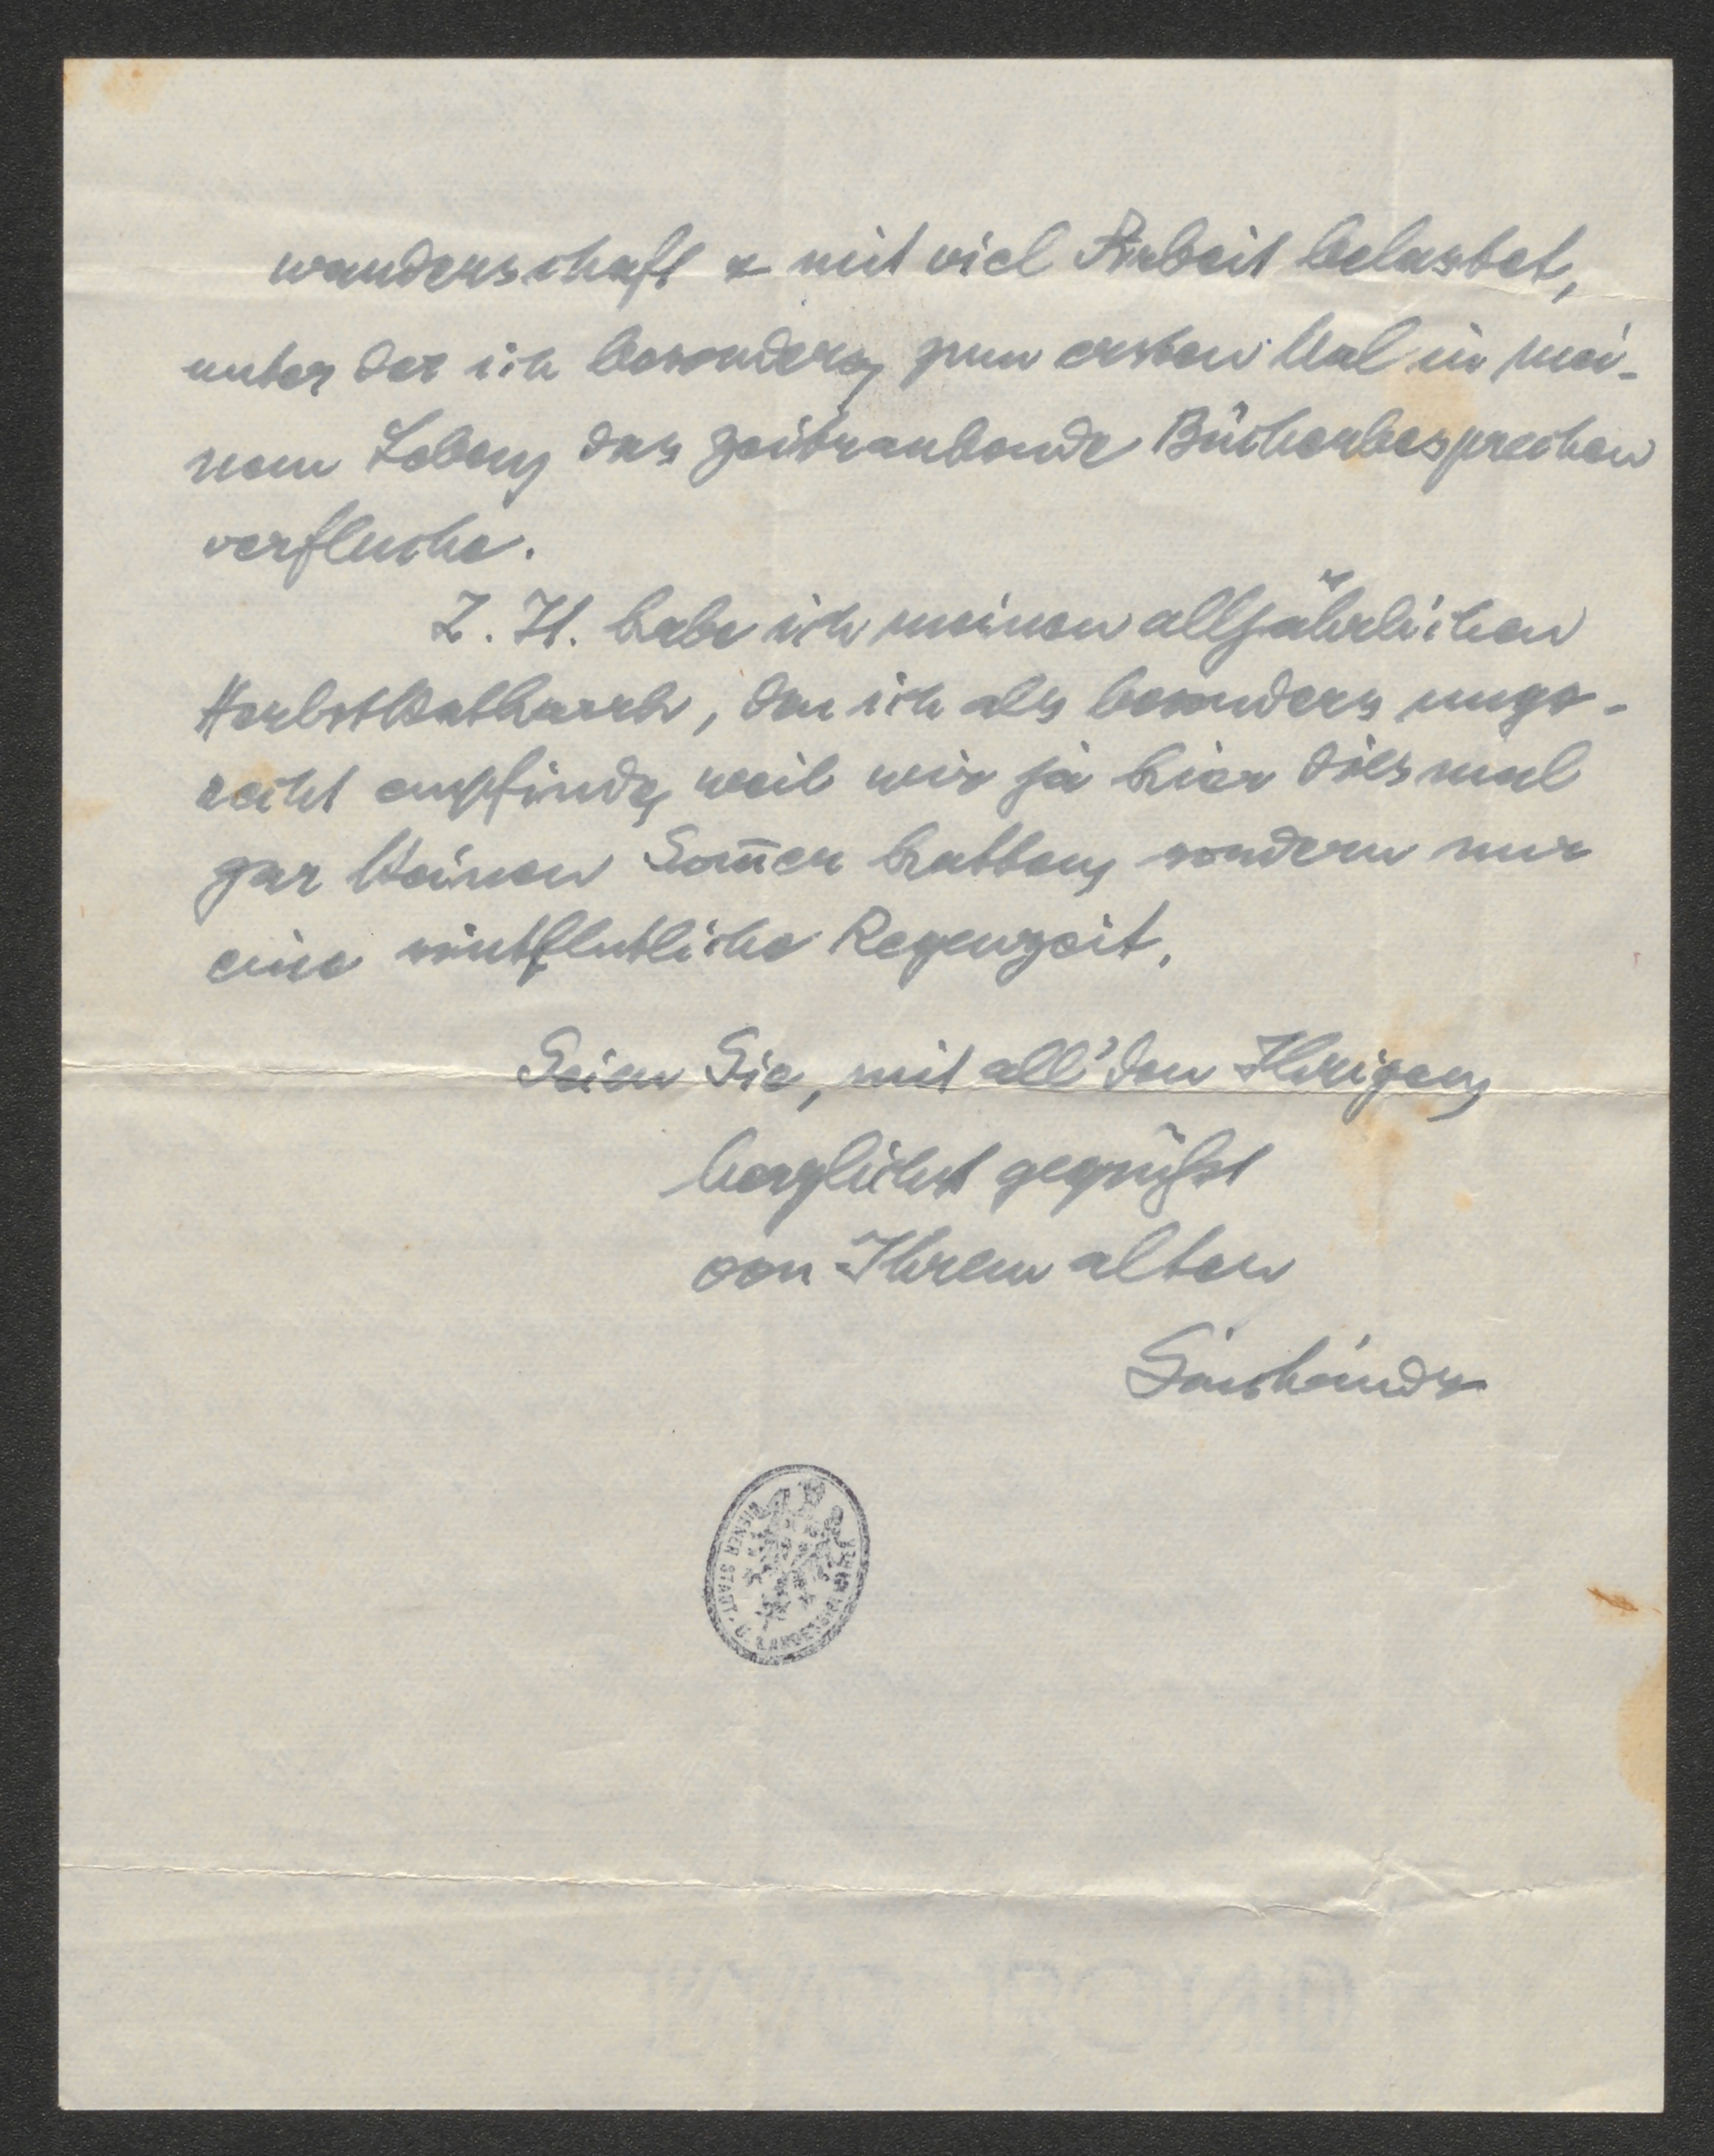 wanderschaft & mit viel Arbeit belastet,
unter der ich besonders, zum ersten Mal in mei-
nem Leben, das zeitraubende Bücherbesprechen
verfluche.
Z. Zt. habe ich meinen alljährlichen
Herbstkatharrh, den ich als besonders unge-
recht empfinde, weil wir ja hier diesmal
gar keinen Som̅er hatten, sondern nur
eine sintflutliche Regenzeit.
Seien Sie, mit all' den Ihrigen,
herzlichst gegrüßt
von Ihrem alten
WIENER STADT- U. LANDESBIBLIOTHEK